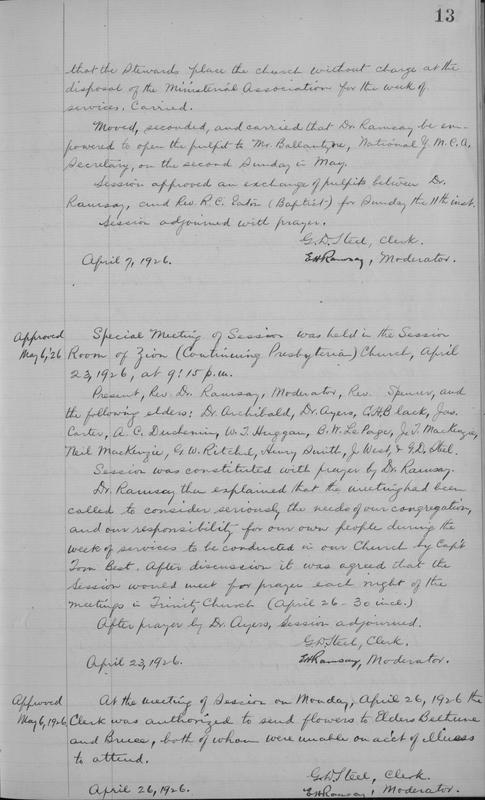 13
that the Stewards place the church without charge at the
disposal of the Ministerial Association for the week of
services. Carried.
Moved, seconded, and carried that Dr. Ramsay be em-
powered to open the pulpit to Mr. Ballantyne, National Y.M.C.A.
Secretary, on the second Sunday in May.
Session approved an exchange of pulpits between Dr.
Ramsay, and Rev. R.C. Eaton (Baptist) for Sunday the 11th inst.
Session adjourned with prayer.
G.D. Steel, Clerk.
April 7, 1926. EHRamsay, Moderator.
Approved
May 6, '26
Special Meeting of Session was held in the Session
Room of Zion (Continuing Presbyterian) Church, April
23, 1926, at 9:15 p.m.
Present, Rev. Dr. Ramsay, Moderator, Rev. Spencer, and
the following elders: Dr. Archibald, Dr. Ayers, G.H. Black, Jas.
Carter, A.C. Duchemin, W.T. Huggan, B.W. LePage, J.T. MacKenzie,
Neil MacKenzie, G.W. Ritchie, Henry Smith, J. West, & G.D. Steel.
Session was constituted with prayer by Dr. Ramsay.
Dr. Ramsay then explained that the meeting had been
called to consider seriously the needs of our congregation,
and our responsibility for our own people during the
week of services to be conducted in our Church by Capt
Tom Best. After discussion it was agreed that the
Session would meet for prayer each night of the
meetings in Trinity Church (April 26-30 incl.)
After prayer by Dr. Ayers, Session adjourned.
G.D. Steel, Clerk.
April 23, 1926. EHRamsay, Moderator.
Approved
May 6, 1926
At the meeting of Session on Monday, April 26, 1926 the
Clerk was authorized to send flowers to Elders Beltune
and Bruce, both of whom were unable on a/c't of illness
to attend.
G.D. Steel, Clerk.
April 26, 1926. EHRamsay, Moderator.